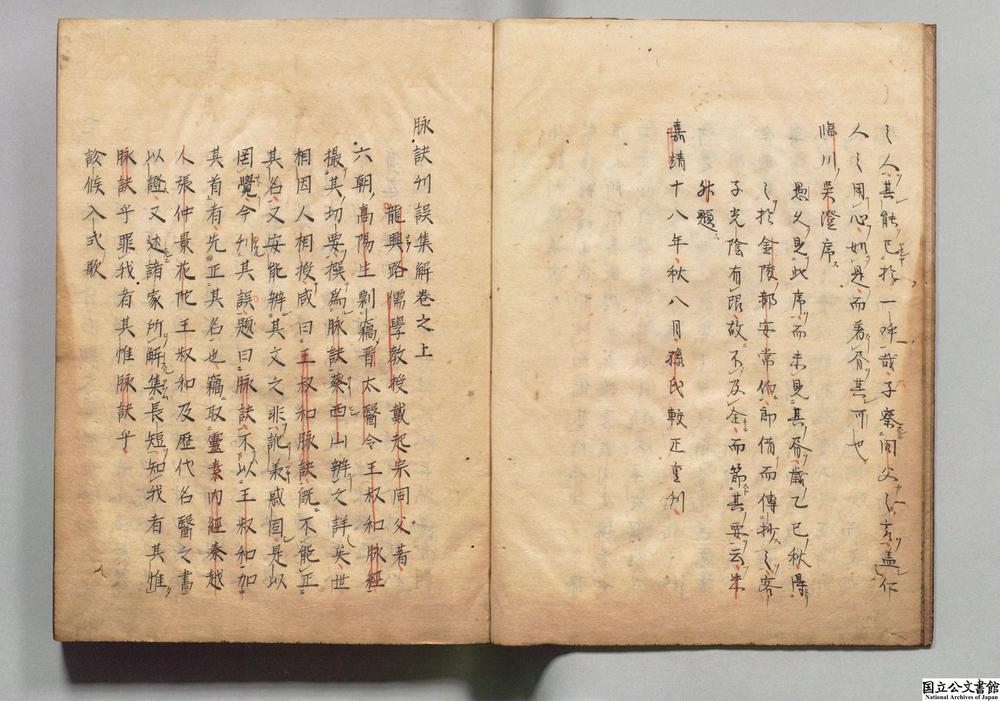 之人、其能已於一呼哉、子察同父之言、盖仁
人之用心、如是而看脅其可也、
臨川吳澄序
愚久見此序、而未見其脅、歳乙巳秋得
之於金陵郡安常伱、即借而傳抄之、客
子光陰有限、故不及全、而節其要云、朱
外題
嘉靖十八年秋八月孫氏較正重刋
脉訣刋誤集解卷之上
龍興路儒學教授戴起宗同父著
六朝高陽生剽竊晋太醫令王叔和脉經
撮其切要撰為脉訣蔡西山辨之詳矣世
相因人相授咸曰王叔和脉訣既不能正
其名又安能辨其文之非訛承惑固是以
罔覺今刋其誤題曰脉訣不以王叔和加
其首者先正其名也竊取靈素内經秦越
人張仲景花陀王叔和及歴代名醫之書
以證又述諸家所解集長短知我者其惟
脉訣乎罪我者其惟脉訣乎
診候入式歌
国立公文書館
National Archives of Japan